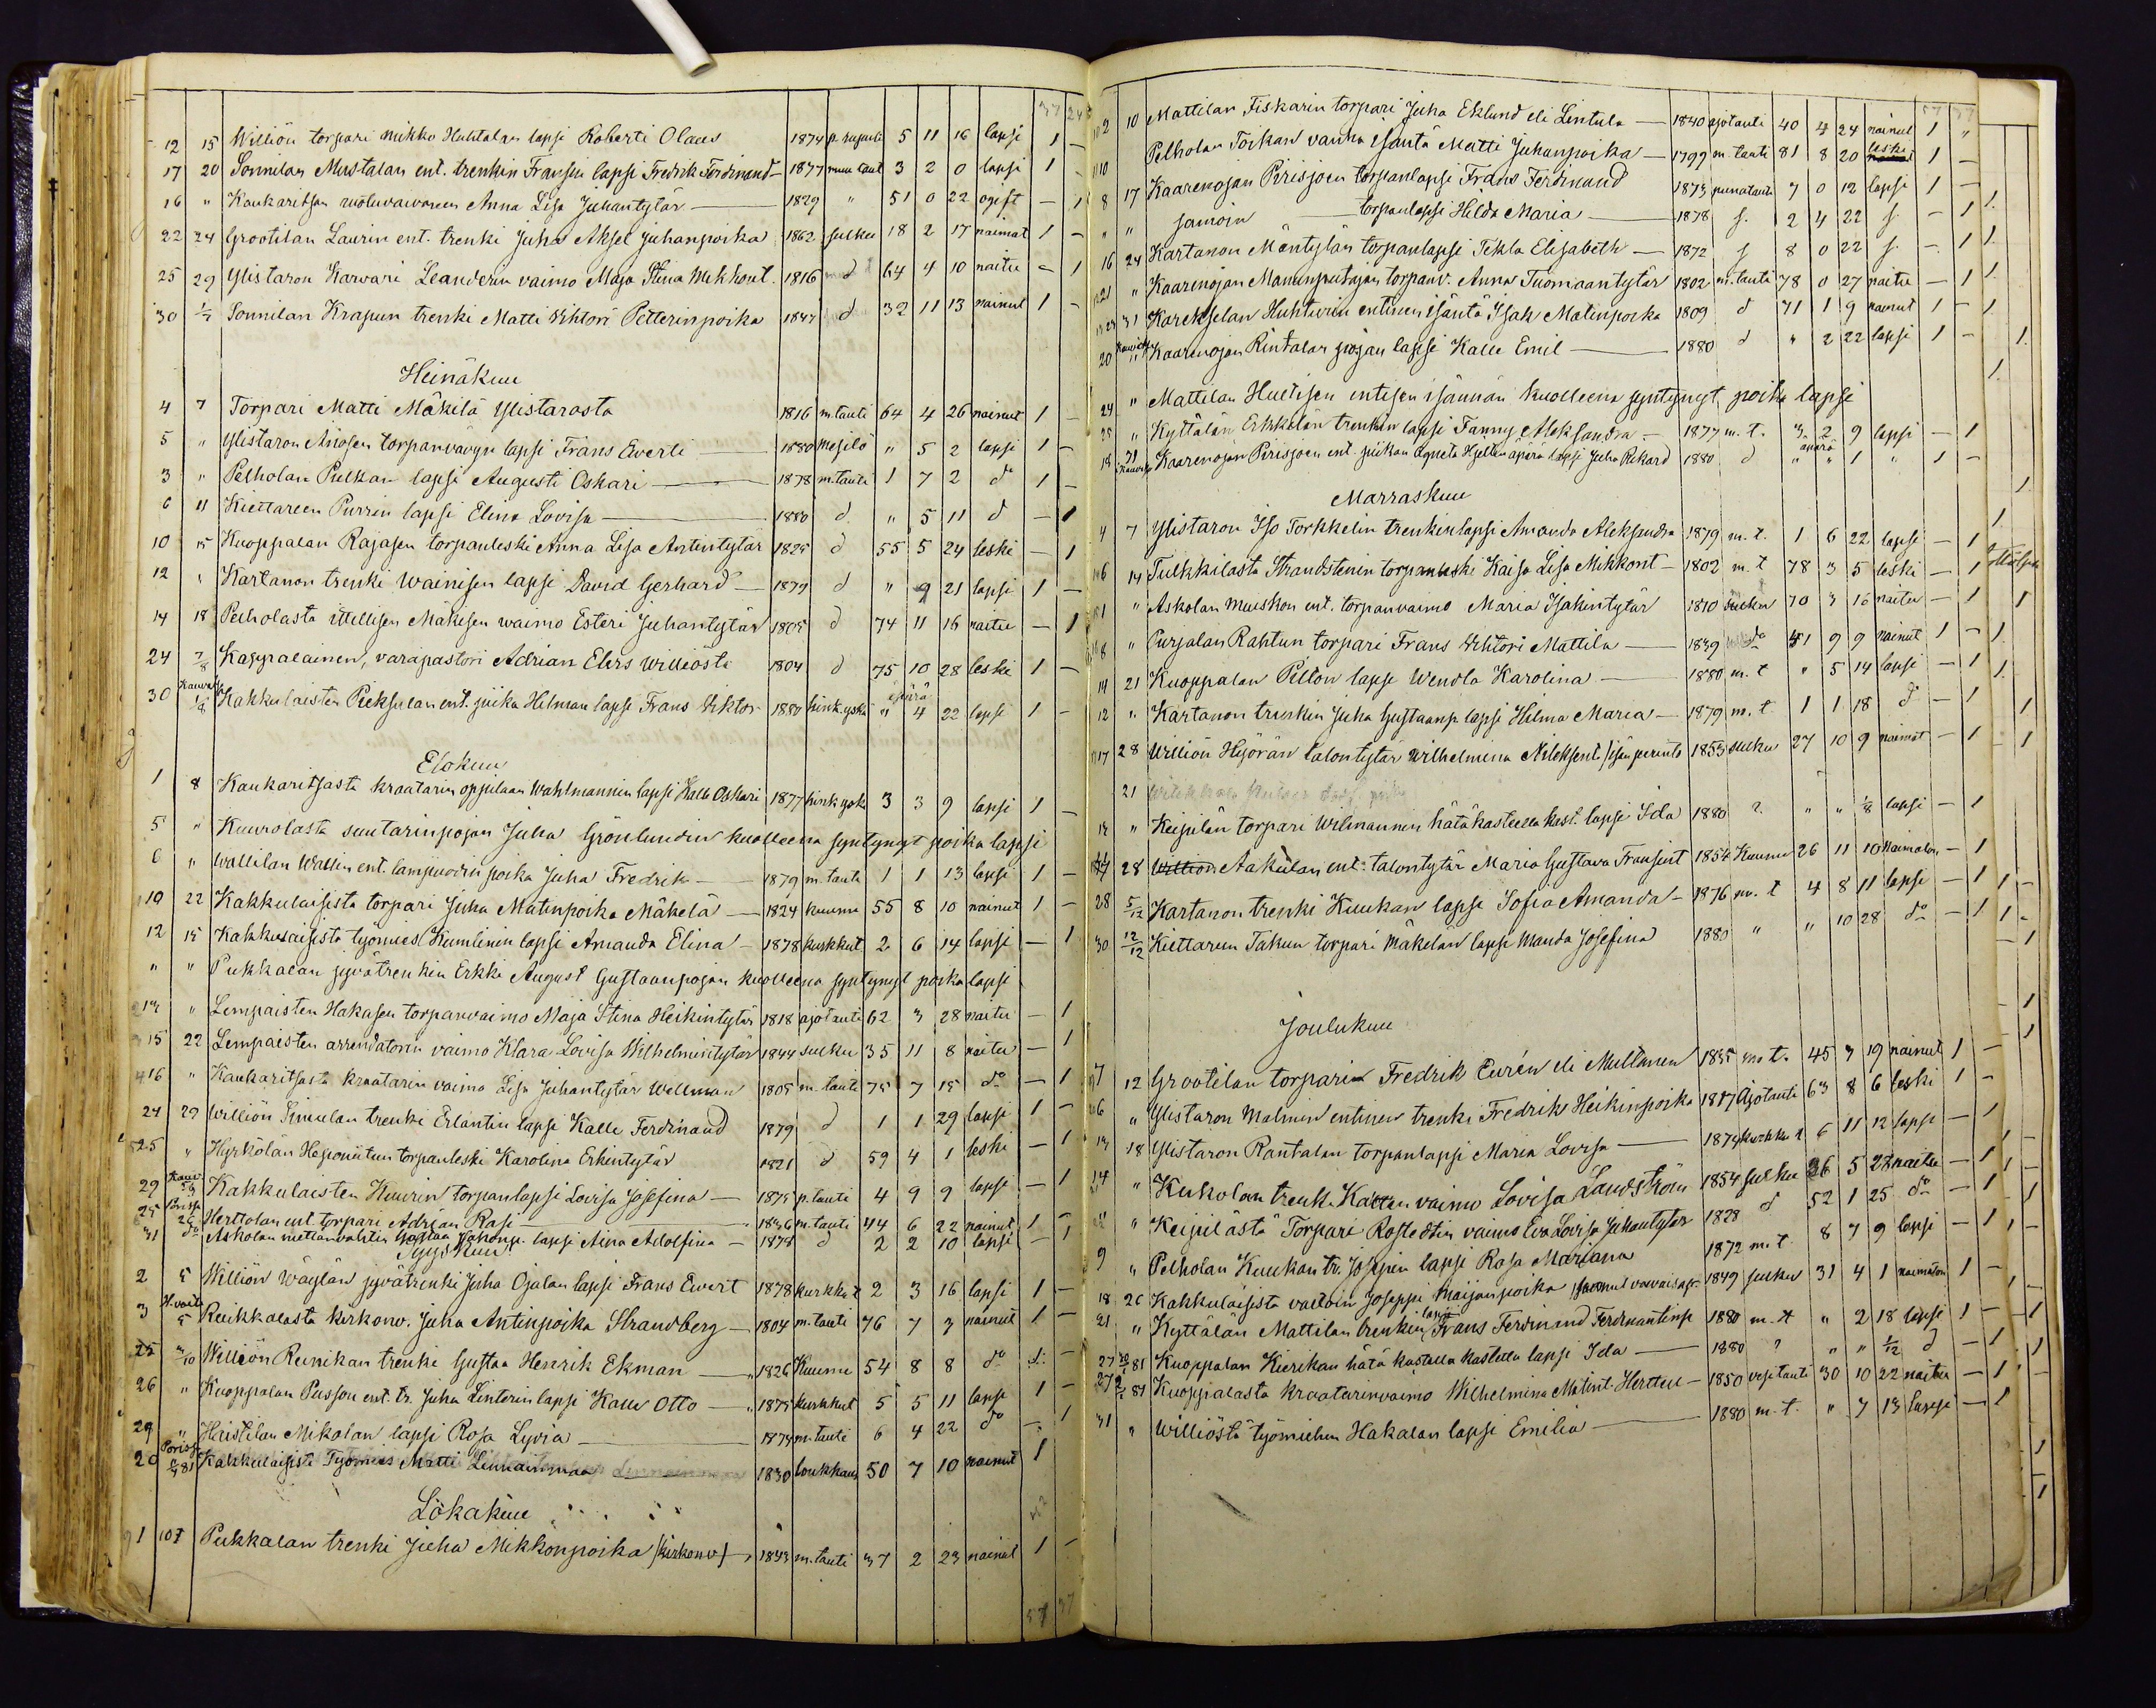 37 24
12 15 Williön torpari Mikko Huhtalan lapsi Roberti Olaus 1874 5 11 16 lapsi 1 -
17 20 Sonnilan Mustalan ent. trenkin Fransin lapsi Fredrik Ferdinand - 1877 muu taut 3 2 0 lapsi 1 -
16 " Kaukaritsan ruotuvaivanen Anna Lisa Juhantytär 1829 " 51 0 22 ogift - 1
22 24 Grootilan Laurin ent. trenki Juho Aksel Juhanpoika 1862 sulku 18 2 17 naimat 1 -
25 29 Ylistaron Karvari Leanderin vaimo Maja Stina Mikkont. 1816 d 64 4 10 naitu - 1
30 1/7 Sonnilan Krapun trenki Matti Vihtori Petterinpoika 1847 d 32 11 13 nainut 1 -
Heinäkuu
4 7 Torpari Matti Mäkilä Ylistarosta 1816 m.tauti 64 4 26 nainut 1 -
5 " Ylistaron Anosen torpanvävyn lapsi Frans Everti 1880 " 5 2 lapsi 1 -
3 " Pelholan Pulkan lapsi Augusti Oskari 1878 m.tauti 1 7 2 do 1 -
6 11 Kiettareen Purrin lapsi Elina Lovisa 1880 d " 5 11 d - 1
10 15 Kuoppalan Rajasen torpanleski Anna Lisa Antintytär 1825 d 55 5 24 leski - 1
12 " Kartanon trenki Wainisen lapsi David Gerhard 1879 d " 9 21 lapsi 1 -
14 18 Pelholasta ittellisen Mäkisen waimo Esteri Juhantytär 1805 d 74 11 16 naitu - 1
24 7/8 Kappalainen, varapastori Adrian Elers Williöstä 1804 d 75 10 28 leski 1 -
30 1/8 Kakkulaisten Pieksulan ent. piika Hilman lapsi Frans Viktor 1880 hink.yskä äpärä " 4 22 lapsi 1 -
Elokuu
1 8 Kaukaritsasta kraatarin oppilaan Wahlmannin lapsi Kalle Oskari 1877 hink.ysk 3 3 9 lapsi 1 -
5 " Kuurolasta suutarinpojan Juha Grönlundin kuolleena syntynyt poika lapsi
6 " Wallilan Wallin ent. lampuodin poika Juha Fredrik 1879 m.tauti 1 1 13 lapsi 1 -
10 22 Kakkulaisista torpari Juha Matinpoika Mäkelä 1824 kuume 55 8 10 nainut 1 -
12 15 Kakkulaisista työmies Kumlinin lapsi Amanda Elina 1878 kurkkut 2 6 14 lapsi - 1
" " Pukkalan syvätrenkin Erkki August Gustaanpojan kuolleena syntynyt poika lapsi
13 " Lempaisten Hakasen torpanvaimo Maja Stina Heikintytär 1818 ajotauti 62 3 28 naitu - 1
15 22 Lempaisten arrendatorin vaimo Klara Lovisa Wilhelmintytär 1844 sulku 35 11 8 naitu - 1
16 " Kaukaritsasta kraatarin vaimo Lisa Juhantytär Wellman 1805 m.tauti 75 7 15 do - 1
24 29 Williön Simulan trenki Erlantin lapsi Kalle Ferdinand 1879 d 1 1 29 lapsi 1 -
25 " Hyrkölän Heponiitun torpanleski Karolina Erkintytär 1821 d 59 4 1 leski - 1
29 Kakkulaisten Kuurin torpanlapsi Lovisa Josefina 1875 p.tauti 4 9 9 lapsi - 1
25 Herttolan ent. torpari Adrian Rasi 1836 m.tauti 44 6 22 nainut 1 -
31 do Askolan metsänvahtin Gustaa lapsi Aina Adolfina 1878 d 2 2 10 lapsi - 1
Syyskuu
2 5 Williön Wäylän syvätrenki Juha Ojalan lapsi Frans Evert 1878 kurkkut 2 3 16 lapsi 1 -
3 5 Reikkalasta kirkonw. Juha Antinpoika Strandberg 1804 m.tauti 76 7 3 nainut 1 -
25 3/10 Williön Reinikan trenki Gustaa Henrik Ekman 1826 Kuume 54 8 8 do
26 " Kuoppalan Passon ent. tr. Juha Linterin lapsi Kalle Otto 1875 kurkkut 5 5 11 lapsi 1 -
29 " Haistilan Mikolan lapsi Rosa Lyvia 1874 m.tauti 6 4 22 do - 1
20 Kakkulaisista Työmies Matti Linnainmaa 1830 loukkaus 50 7 10 nainut 1
Lokakuu
1 Pukkalan trenki Juha Mikkonpoika (kirkonv) 1843 m.tauti 37 2 23 nainut 1 -
57 37
57 37
2 10 Mattilan Fiskarin torpari Juha Eklund eli Lintula 1840 ajotauti 40 4 24 nainut 1 "
10 Pelholan Toikan vanha isäntä Matti Juhanpoika 1799 m.tauti 81 8 20 leski 1 -
8 17 Kaarenojan Pirisjoen torpanlapsi Frans Ferdinand 1873 punatauti 7 0 12 lapsi 1 -
" " samoin torpanlapsi Hilda Maria 1878 s. 2 4 22 s. - 1
16 24 Kartanon Mäntylän torpanlapsi Tekla Elisabeth 1872 s 8 0 22 s. - 1
21 " Kaarenojan torpanv. Anna Tuomaantytär 1802 m.tauti 78 0 27 naitu - 1
31 Karekselan Huhturin entinen isäntä Isak Matinpoika 1809 d 71 1 9 nainut 1 -
20 " Kaarenojan Rintalan pojan lapsi Kalle Emil 1880 d " 2 22 lapsi 1 -
24 " Mattilan Huetisen entisen isännän kuolleena syntynyt poika lapsi
25 " Kyttälän Erkkilän trenkin lapsi Fanny Aleksandra 1877 m.t. 3 2 9 lapsi - 1
18 Kaarenojan Pirisjoen ent. piikan Agneta Hjellin äpärä lapsi Juho Rikard 1880 d " äpärä " 1 " 1 -
Marraskuu
4 7 Ylistaron Iso Torkkelin trenkinlapsi Amanda Aleksandra 1879 m.t. 1 6 22 lapsi - 1
6 14 Tulkkilasta Strandstenin torpanleski Kaisa Lisa Mikkont 1802 m.t 78 3 5 leski - 1
" Askolan Muiskon ent. torpanvaimo Maria Isakintytär 1810 sulku 70 3 16 naitu - 1
8 " Purjalan Rahtun torpari Frans Vihtori Mattila 1839 do 41 9 9 nainut 1 -
14 21 Kuoppalan Pelton lapsi Wendla Karolina 1880 m.t " 5 14 lapsi - 1
12 " Kartanon trenkin Juha Gustaanp lapsi Hilma Maria 1879 m.t 1 1 18 do - 1
17 28 Williön Hyörän talontytär Wilhelmina 1853 sulku 27 10 9 naimat - 1
21
" Keipilän torpari Wilmannin hätäkasteella kast. lapsi Ida 1880 ? " " 1/8 lapsi - 1
28 Aakulan ent. talontytär Maria Gustava Fransint 1854 Kuume 26 11 10 Naimaton - 1
28 5/12 Kartanon trenki Kuukan lapsi Sofia Amanda 1876 m.t 4 8 11 lapsi - 1
30 12/12 Kiettareen Takun torpari Mäkelän lapsi Manda Josefina 1880 " " 10 28 do - 1
Joulukuu
7 12 Grootilan torpari Fredrik Eurén eli Multanen 1835 m.t. 45 3 19 nainut 1 -
6 " Ylistaron Malmin entinen trenki Fredrik Heikinpoika 1817 Ajotauti 63 8 6 leski 1 -
13 18 Ylistaron Rantalan torpanlapsi Maria Lovisa 1874 kurkkut 6 11 12 lapsi - 1
14 " Kukolan trenk. Kattan vaimo Lovisa Landström 1854 sulku 26 5 27 naitu - 1
" Keipilästä Torpari Rostedtin vaimo Eva Lovisa Juhantytär 1828 d 52 1 25 do - 1
9 " Pelholan Kuukan tr. Josepin lapsi Rosa Mariana 1872 m.t 8 7 9 lapsi - 1
18 26 Kakkulaisista valtoin Joseppi Maijanpoika 1849 sulku 31 4 1 naimaton 1 -
21 " Kyttälän Mattilan trenkin lapsi Frans Ferdinand Ferdinantinp 1880 m.t " 2 18 lapsi 1 -
27 81 Kuoppalan Kierikan hätä kastella kastettu lapsi Ida 1880 ? " " 1/12 d - 1
27 81 Kuoppalasta kraatarinvaimo Wilhelmina Matint. Herttu 1850 vesitauti 30 10 22 naitu - 1
31 " Williöstä työmiehen Hakalan lapsi Emilia 1880 m.t. " 7 13 lapsi - 1